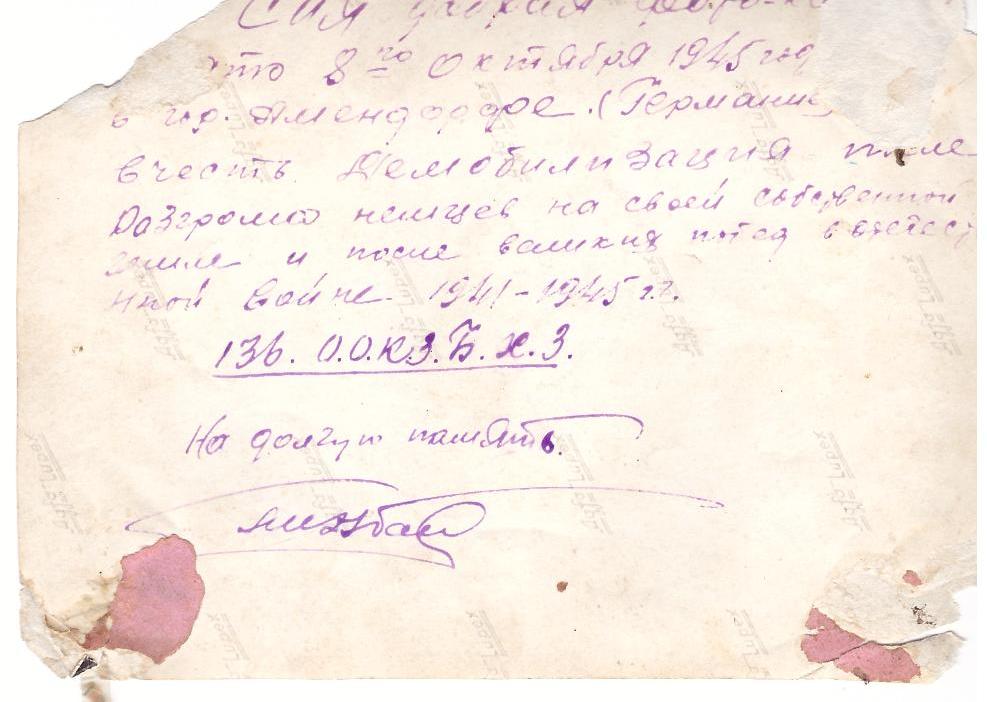 Сия
8го Октября 1945 год
в гор. Амендорфе. (Германия
в честь Демобилизация после
Разгрома немцев на своей собственной
земле и после великих побед в отечест
нной войне 1941-1945 г.г.
136. О.О.К.З.Б.Х.З.
На долгую память.
Agfa Lupex